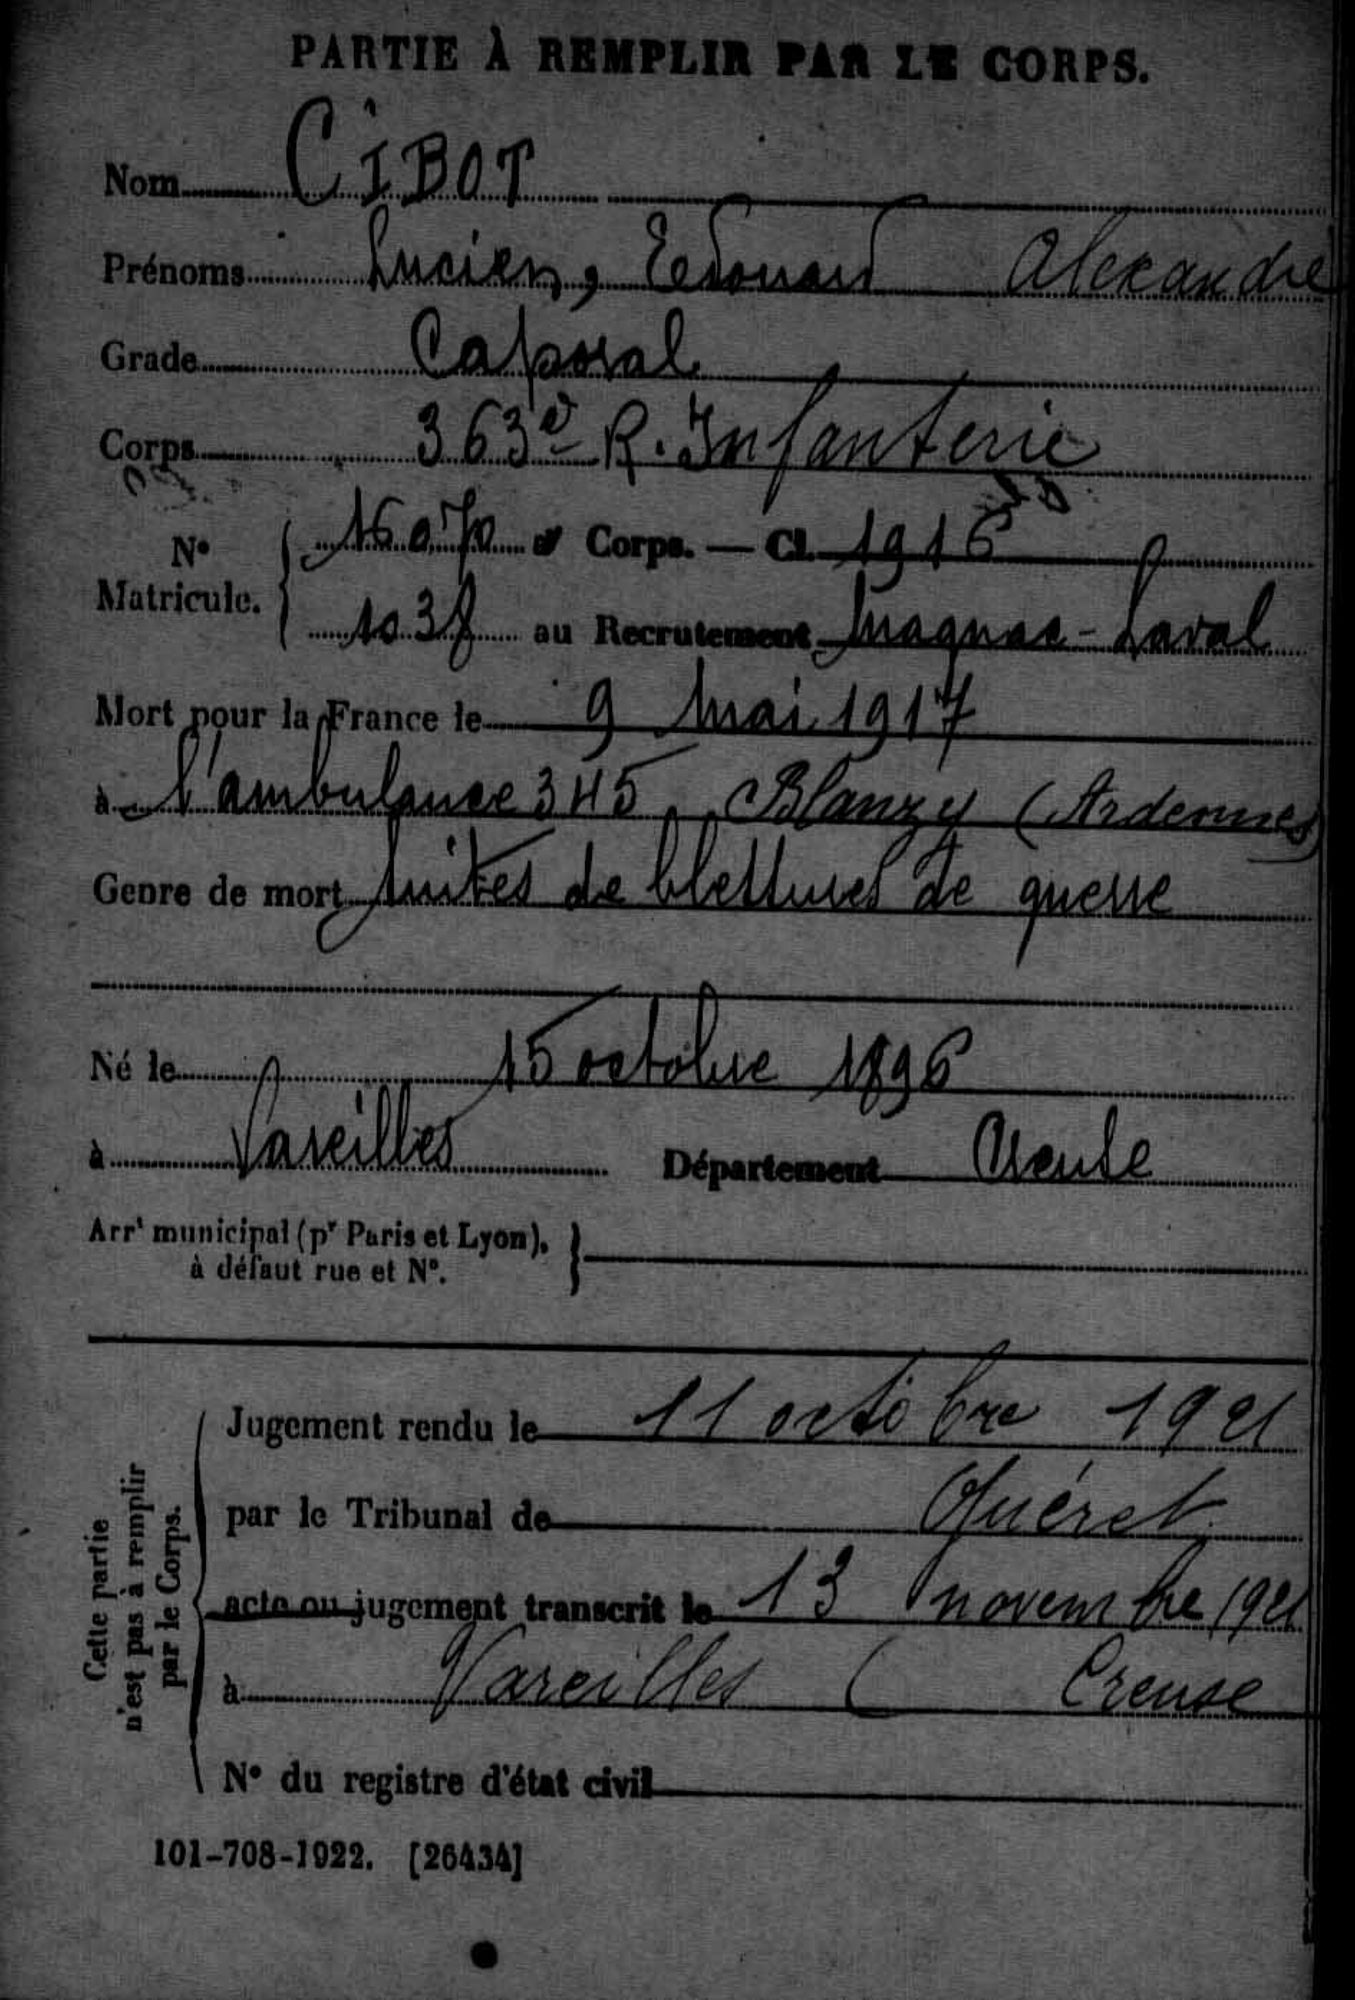 PARTIE À REMPLIR PAR LE CORPS.
Nom CIBOT
Prénoms Lucien, Edouard Alexandre
Grade Caporal
Corps 363e R. Infanterie
No Matricule. { 16070 au Corps. — Cl. 1916
1038 au Recrutement Magnac-Laval
Mort pour la France le 9 Mai 1917
à l'ambulance 345 Blanzy (Ardennes)
Genre de mort suites de blessures de guerre
Né le 15 octobre 1896
à Vareilles Département Creuse
Arrt municipal (pr Paris et Lyon),
à défaut rue et No.
Cette partie
n'est pas à remplir
par le Corps.
Jugement rendu le 11 octobre 1921
par le Tribunal de Guéret
acte ou jugement transcrit le 13 novembre 1921
à Vareilles ( Creuse
No du registre d'état civil
101-708-1922. [26434]